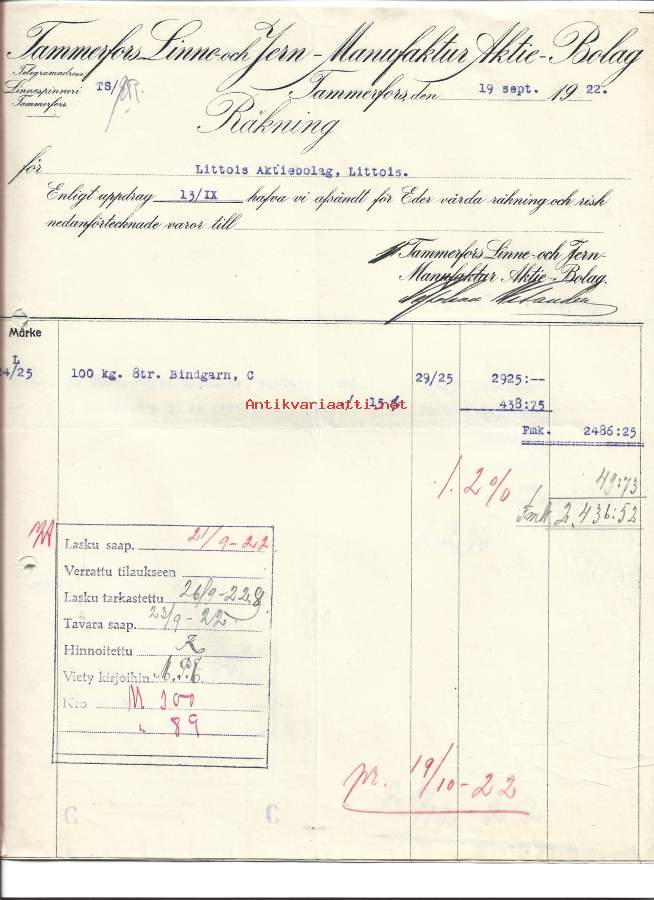 Tammerfors Linne- och Jern-Manufaktur Aktie-Bolag
Telegramadress:
Linnespinneri
Tammerfors.
TS/
Tammerfors, den 19 sept. 1922.
Räkning
för Littois Aktiebolag, Littois.
Enligt uppdrag 13/IX hafva vi afsändt för Eder värda räkning och risk
nedanförtecknade varor till
Tammerfors Linne- och Jern-
Manufaktur Aktie-Bolag.
Märke
L
24/25 100 kg. 8tr. Bindgarn, C 29/25 2925:--
Antikvariaatti.net
15 438:75
Fmk. 2486:25
/. 2% 49:73
Fmk 2,436:52
Lasku saap. 21/9-22
Verrattu tilaukseen
Lasku tarkastettu 26/9-22
Tavara saap. 23/9-22
Hinnoitettu
Viety kirjoihin
Kto M 300
" 89
pr. 19/10-22
C C